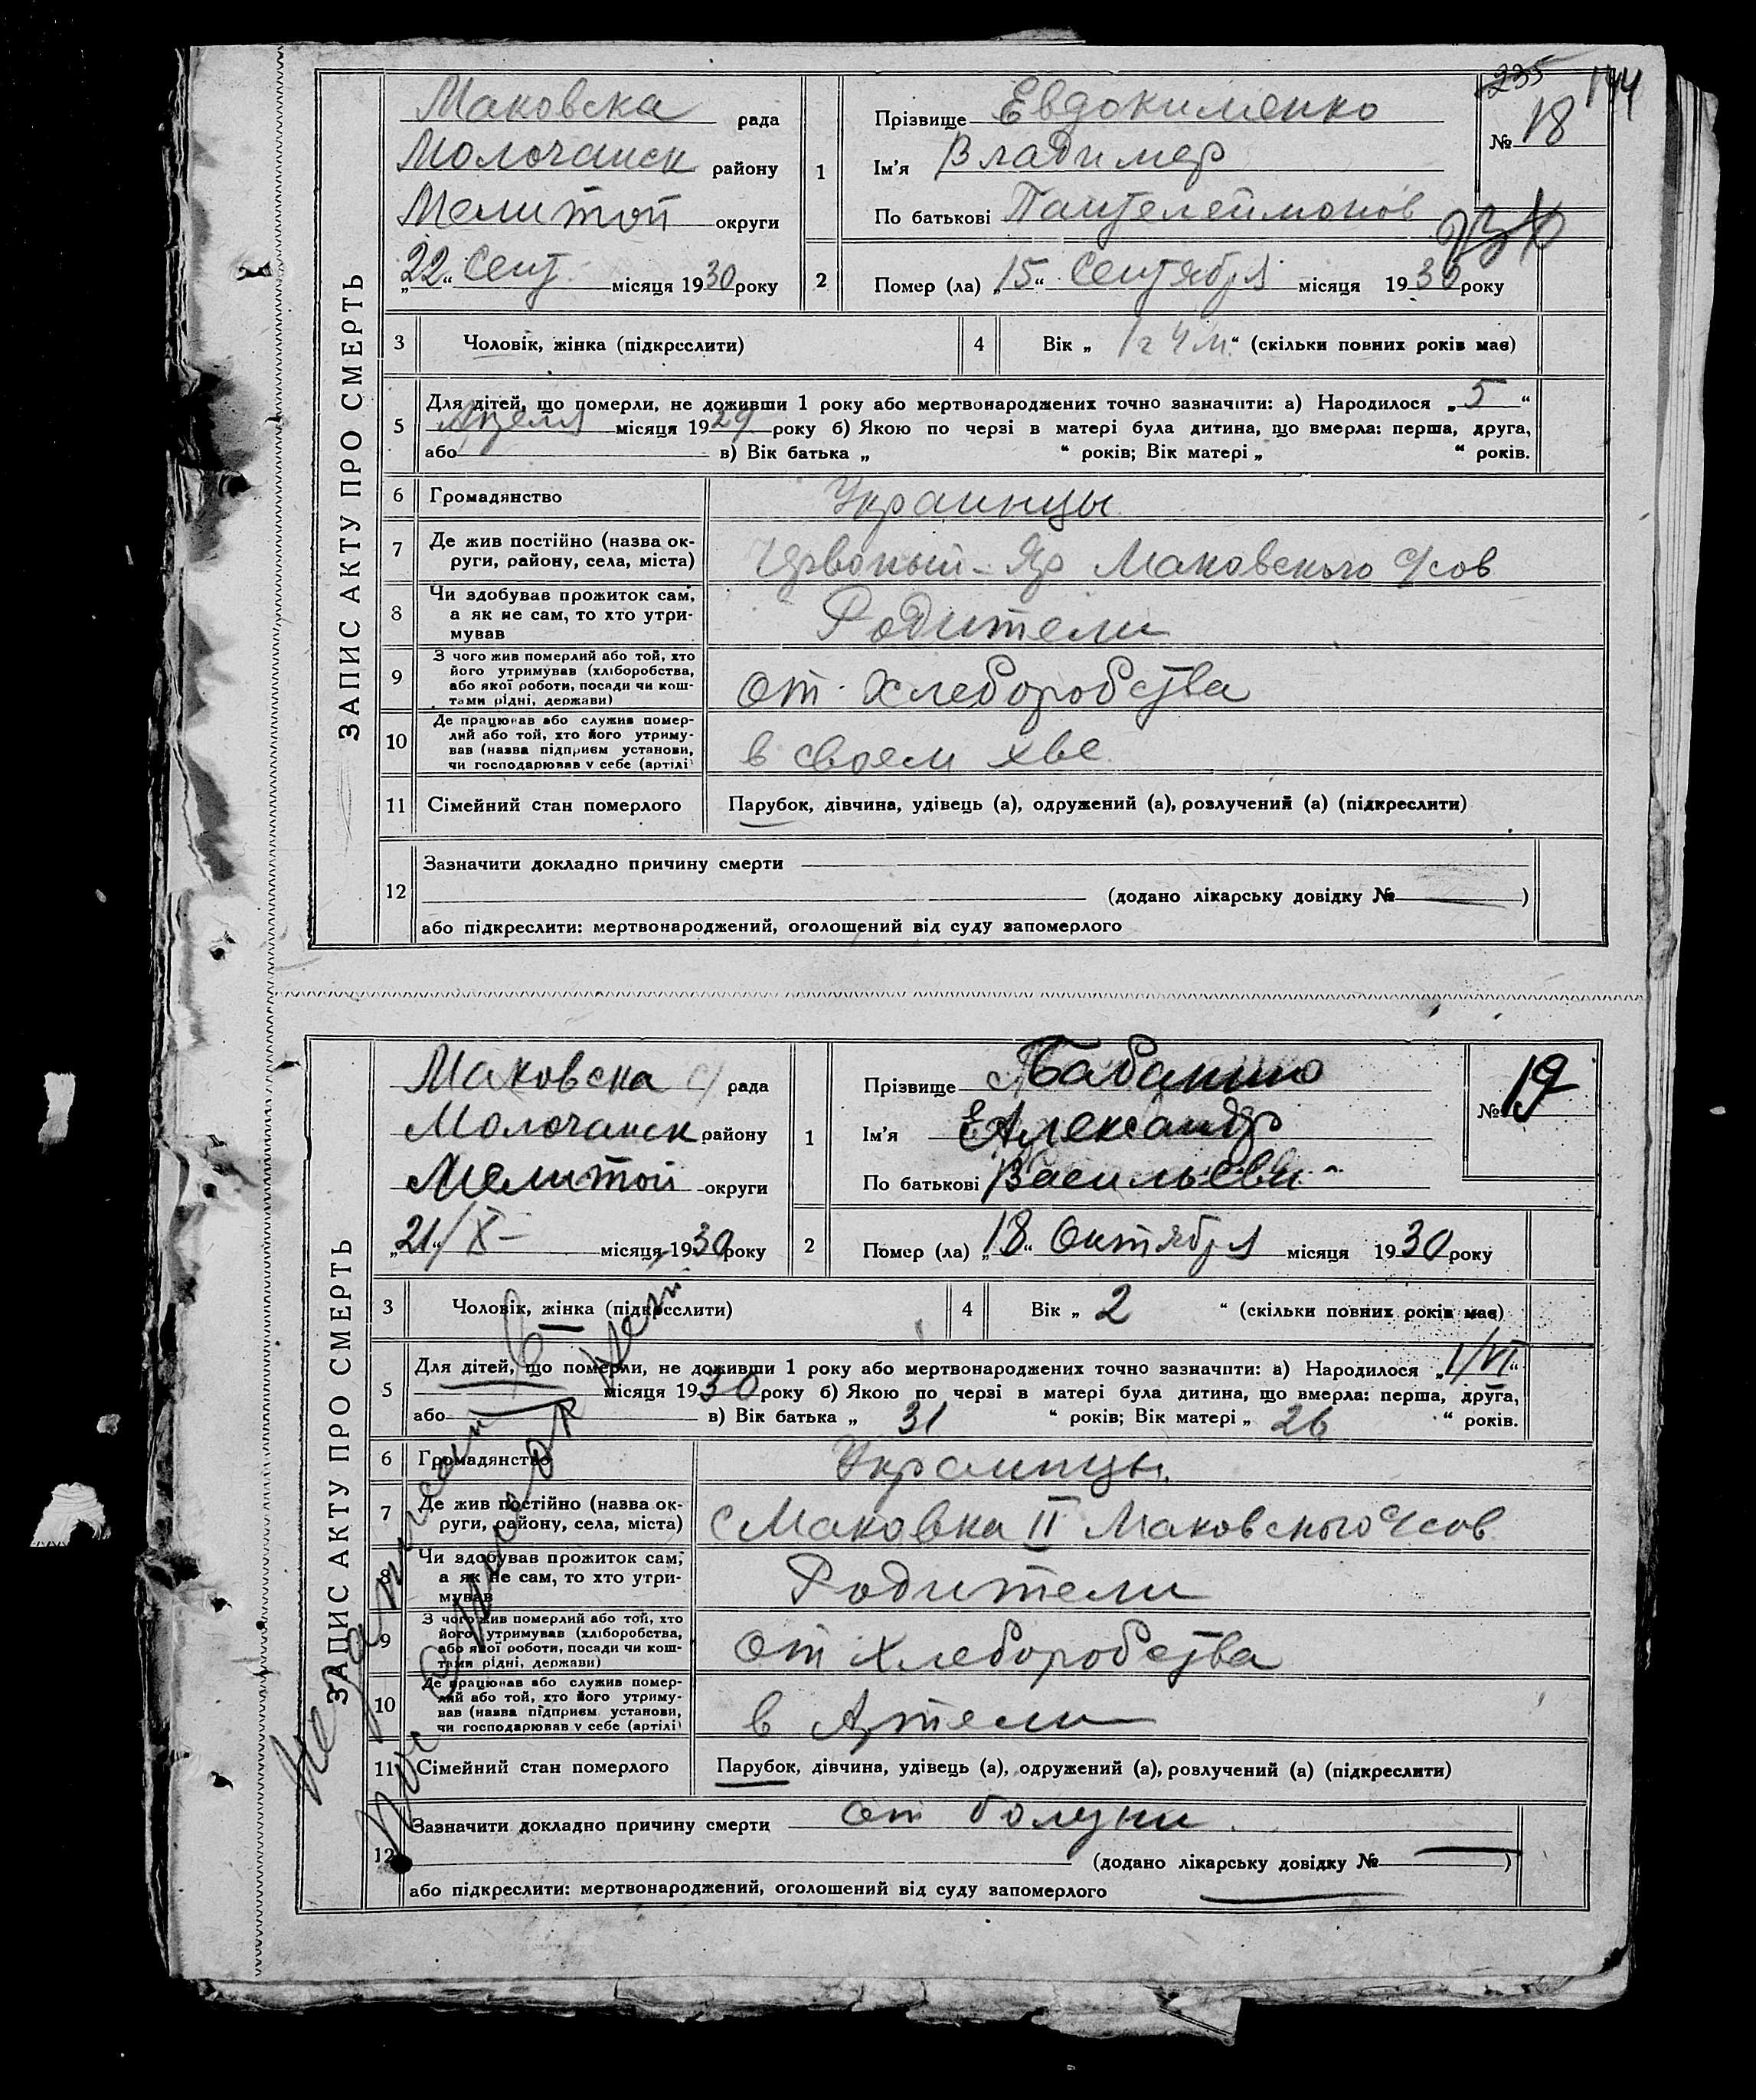 235 144
ЗАПИС АКТУ ПРО СМЕРТЬ
Маковска рада
Молочанск району
Мелитой округи
„22“ Сент. місяця 1930 року
1
Прізвище Евдокименко
Ім'я Владимер
По батькові Пантелеймонов
№ 18
2 Помер (ла) „15“ Сентября місяця 1930 року
3 Чоловік, жінка (підкреслити)
4 Вік „1г 4 м.“ (скільки повних років має)
5 Для дітей, що померли, не доживши 1 року або мертвонароджених точно зазначити: а) Народилося „5“
Апреля місяця 1929 року б) Якою по черзі в матері була дитина, що вмерла: перша, друга,
або в) Вік батька „ “ років; Вік матері „ “ років.
6 Громадянство Украинцы
7 Де жив постійно (назва ок-
руги, району, села, міста) Червоный-Яр Маковского с/сов
8 Чи здобував прожиток сам,
а як не сам, то хто утри-
мував Родители
9 З чого жив померлий або той, хто
його утримував (хліборобства,
або якої роботи, посади чи кош-
тами рідні, держави) от хлеборобства
10 Де працював або служив помер-
лий або той, хто його утриму-
вав (назва підприєм установи,
чи господарював у себе (артілі) в своем хве
11 Сімейний стан померлого Парубок, дівчина, удівець (а), одружений (а), розлучений (а) (підкреслити)
12 Зазначити докладно причину смерти
(додано лікарську довідку № )
або підкреслити: мертвонароджений, оголошений від суду запомерлого
ЗАПИС АКТУ ПРО СМЕРТЬ
Маковска с/ рада
Молочанск району
Мелитой округи
„21“/X- місяця 1930 року
1
Прізвище Бабанино
Ім'я Александр
По батькові Васильеви
№ 19
2 Помер (ла) „18“ Октября місяця 1930 року
3 Чоловік, жінка (підкреслити)
4 Вік „2 “ (скільки повних років має)
5 Для дітей, що померли, не доживши 1 року або мертвонароджених точно зазначити: а) Народилося „1/VI“
місяця 1930 року б) Якою по черзі в матері була дитина, що вмерла: перша, друга,
або в) Вік батька „31“ років; Вік матері „26“ років.
6 Громадянство Украинцы.
7 Де жив постійно (назва ок-
руги, району, села, міста) с Маковка II Маковского с/сов
8 Чи здобував прожиток сам,
а як не сам, то хто утри-
мував Родители
9 З чого жив померлий або той, хто
його утримував (хліборобства,
або якої роботи, посади чи кош-
тами рідні, держави) от хлеборобства
10 Де працював або служив помер-
лий або той, хто його утриму-
вав (назва підприєм. установи,
чи господарював у себе (артілі) в Артели
11 Сімейний стан померлого Парубок, дівчина, удівець (а), одружений (а), розлучений (а) (підкреслити)
12 Зазначити докладно причину смерти от болезни.
(додано лікарську довідку № )
або підкреслити: мертвонароджений, оголошений від суду запомерлого